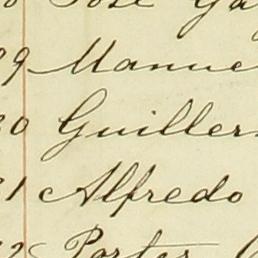 José Ga
9 Manue
0 Guiller
1 Alfredo
2 Porter